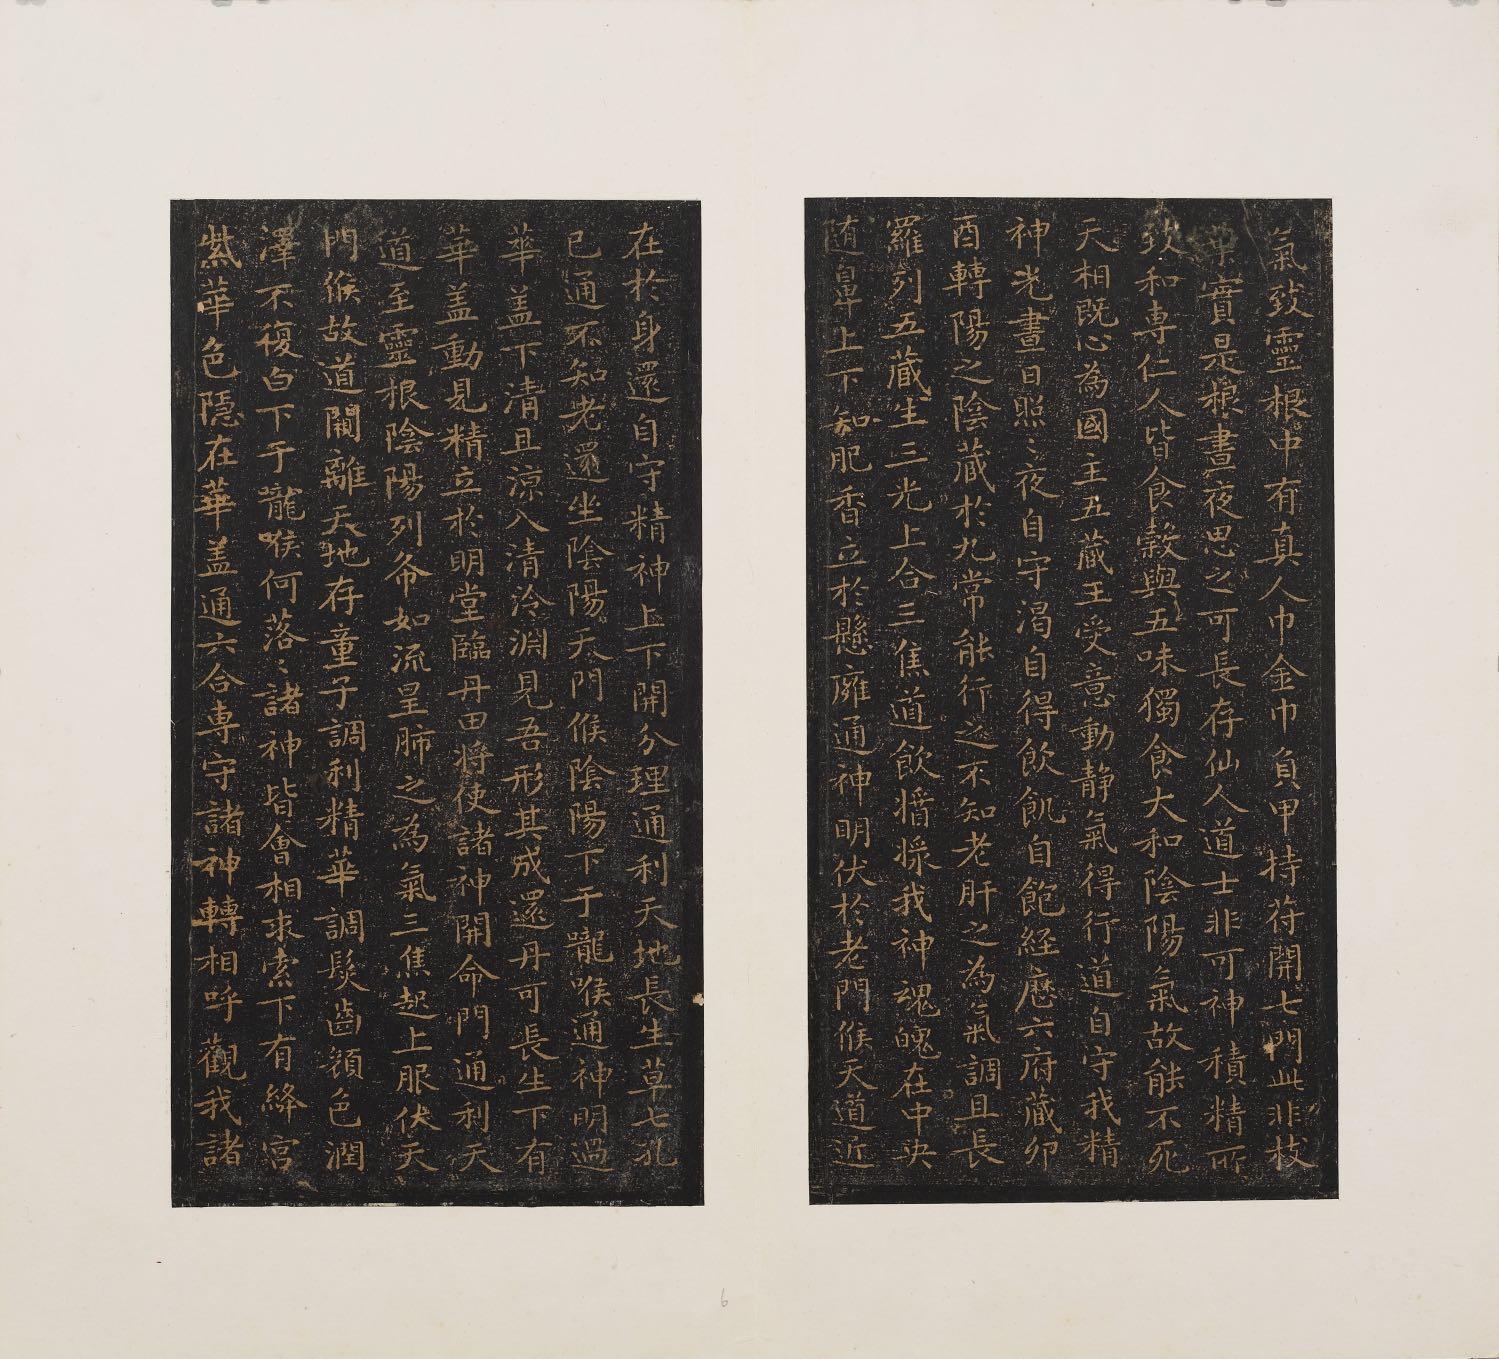 氣致靈根中有真人巾金巾負甲持苻開七門此非枝
華實是根晝夜思之可長存仙人道士非可神積精所
致和専仁人皆食穀與五味獨食大和陰陽氣故能不死
天相既心為國主五蔵王受意動静氣得行道自守我精
神光晝日照〻夜自守渴自得飲飢自飽経歴六府蔵卯
酉轉陽之陰蔵於九常能行之不知老肝之為氣調且長
羅列五蔵生三光上合三焦道飲醬漿我神魂魄在中央
随鼻上下知肥香立於懸廱通神明伏於老門候天道近
在於身還自守精神上下開分理通利天地長生草七孔
已通不知老還坐陰陽天門候陰陽下于嚨喉通神明過
華盖下清且涼入清泠渊見吾形其成還丹可長生下有
華盖動見精立於明堂臨丹田将使諸神開命門通利天
道至靈根陰陽列布如流星肺之為氣三焦起上服伏天
門候故道闚離天地存童子調利精華調髮齒顔色潤
澤不復白下于嚨喉何落〻諸神皆會相求索下有絳宫
紫華色隱在華盖通六合専守諸神轉相呼觀我諸